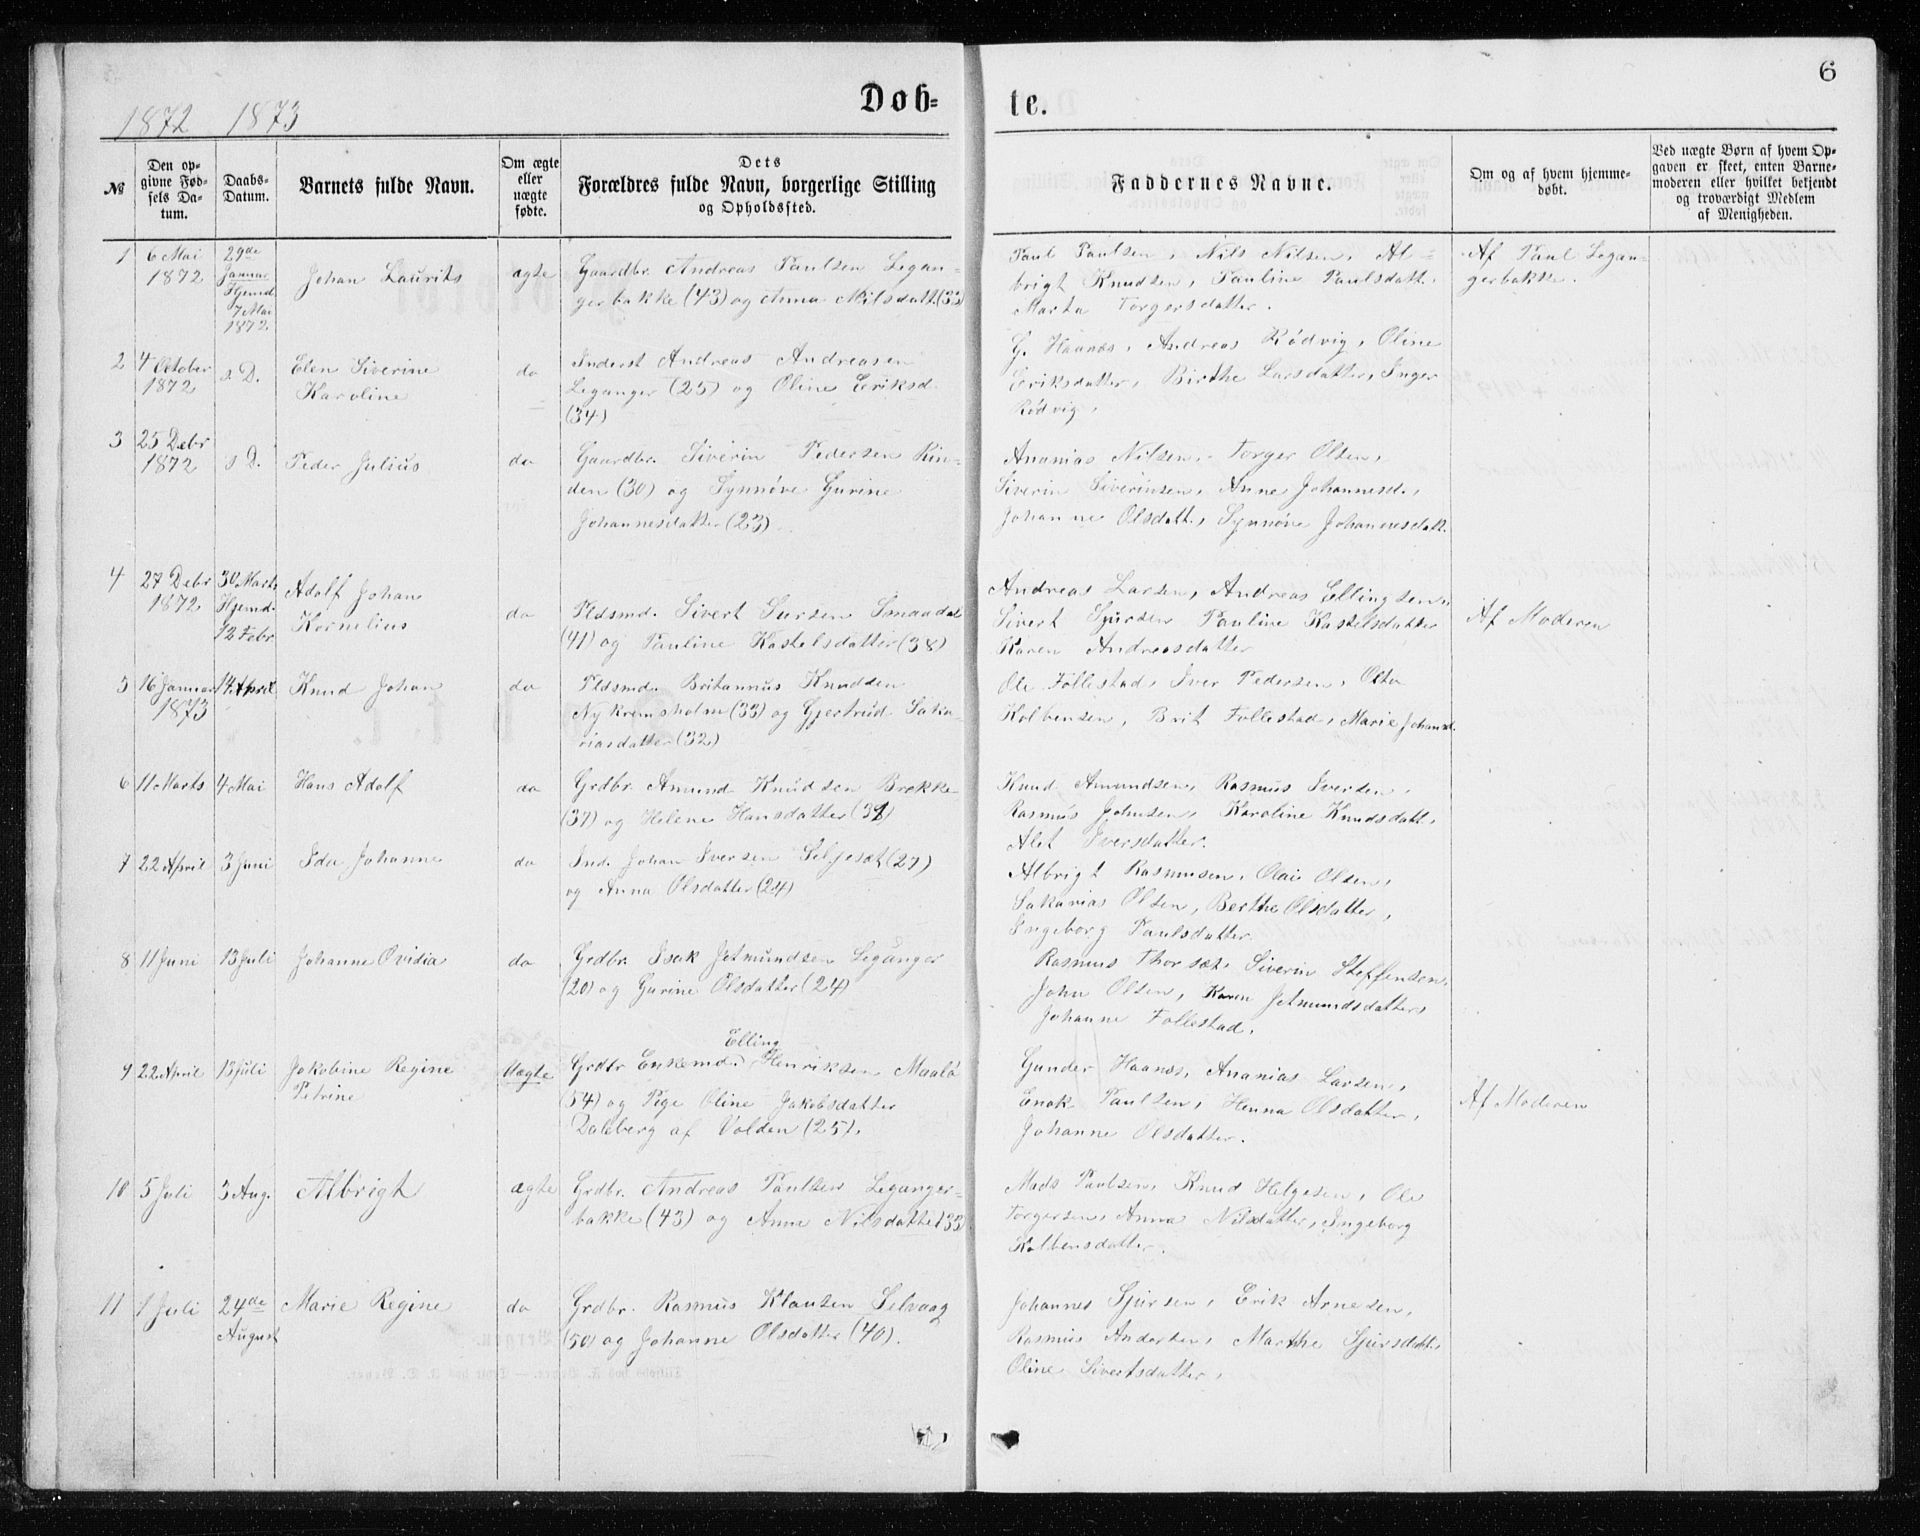 6
Döb=
te.
1872 1873
№
Den op-
givne Fød-
sels Da-
tum.
Daabs-
Datum.
Barnets fulde Navn.
Om ægte
eller
uægte
fødte.
Dets
Forældres fulde Navn, borgerlige Stilling
og Opholdssted.
Faddernes Navne.
Om og af hvem hjemme-
døbt.
Ved uægte Børn af hvem Op-
gaven er skeet, enten Barne-
moderen eller hvilket bekjendt
og troværdigt Medlem
af Menigheden.
1
6 Mai
1872
29de
Januar
Hjemd.
7 Mai
1872
Johan Laurits
ægte
Gaardbr. Andreas Paulsen Legan-
gerbakke (43) og Anna Nilsdatt (33)
Paul Paulsen, Nils Nilsen, Al-
brigt Knudsen, Pauline Paulsdatt.
Marta Torgersdatter.
Af Paul Legan-
gerbakke.
2
4 October
1872
s D.
Elen Siverine
Karoline
do
Inderst Andreas Andreasen
Leganger (25) og Oline Eriksd.
(34)
G. Haanes, Andreas Rødvig, Oline
Eriksdatter, Birthe Larsdatter, Inger
Rødvig,
3
25 Debr
1872
s D.
Peder Julius
do
Gaardbr. Siverin Pedersen Rin-
den (30) og Synnøve Gurine
Johannesdatter (23)
Ananias Nilsen, Torger Olsen,
Siverin Siverinsen, Anne Johannesd.,
Johanne Olsdatt., Synnøve Johannesdatt.
4
27 Debr
1872
30 Marts
Hjemd.
12 Febr
Adolf Johan
Kornelius
do
Pldsmd. Sivert Sursen Smaadal
(41) og Pauline Kastelsdatter (38)
Andreas Larsen, Andreas Ellingsen,
Sivert Sjursen Pauline Kastelsdatter
Karen Andreasdatter
Af Moderen
5
16 Januar
1873
14 April
Knud Johan
do
Pldsmd. Britannus Knudsen
Nykremsholm (33) og Gjertrud Saka-
riasdatter (32)
Ole Follestad, Iver Pedersen, Olta
Kolbensen, Brit Follestad, Marie Johansd.
6
11 Marts
4 Mai
Hans Adolf
do
Grdbr. Amund Knudsen Brekke
(37) og Helene Hansdatter (31)
Knud Amundsen, Rasmus Iversen,
Rasmus Johnsen, Karoline Knudsdatt,
Alet Iversdatter.
7
22 April
3 Juni
Ida Johanne
do
Ind. Johan Iversen Seljeset (27)
og Anna Olsdatter (24)
Albrigt Rasmusen, Olai Olsen,
Sakarias Olsen, Berthe Olsdatter,
Ingeborg Paulsdatter.
8
11 Juni
13 Juli
Johanne Ovidia
do
Grdbr. Isak Jetmundsen Leganger
(20) og Gurine Olsdatter (24)
Rasmus Thorset, Siverin Steffensen,
John Olsen, Karen Jetmundsdatter,
Johanne Follestad.
9
22 April
13 Juli
Jakobine Regine
Petrine
Uægte
Elling
Grdbr Enkemd. Henriksen Maalø
(54) og Pige Oline Jakobsdatter
Dalsberg af Volden (25).
Gunder Haanes, Ananias Larsen,
Enok Paulsen, Henna Olsdatter,
Johanne Olsdatter.
Af Moderen
10
5 Juli
3 Aug.
Albrigt
ægte
Grdbr. Andreas Paulsen Leganger-
bakke (43) og Anna Nilsdatter (33)
Mads Paulsen, Knud Helgesen, Ole
Torgersen, Anna Nilsdatter, Ingeborg
Kolbensdatter.
11
1 Juli
24de
August
Marie Regine
do
Grdbr. Rasmus Klausen Selvaag
(50) og Johanne Olsdatter (40).
Johannes Sjursen, Erik Arnesen,
Rasmus Andersen, Marthe Sjursdatt.,
Oline Sivertsdatter,